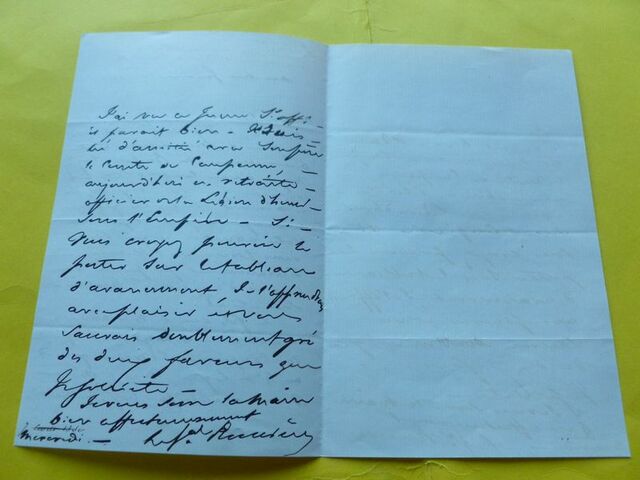 J'ai vu ce jeune S. off.
il parait bien - Je suis
lié d'amitié avec
le Comte de
aujourd'hui en retraite
officier de la Légion d'hon
sous l'Empire - Si
vous croyez pouvoir le
porter sur le tableau
d'avancement Je l'
avec plaisir et vous
saurais doublement gré
des deux faveurs que
Je sollicite -
Je vous serre la main
bien affectueusement
mercredi. - Le Gal